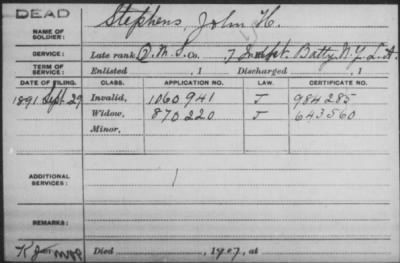 DEAD
NAME OF SOLDIER: Stephens, John H.
SERVICE: Late rank Q.M.S. Co. 7 Indpt. Batty N.Y. L.A.
TERM OF SERVICE: Enlisted , 1 Discharged , 1
DATE OF FILING. CLASS. APPLICATION NO. LAW. CERTIFICATE NO.
1891 Sept. 29 Invalid, 1060 941 J 984285
Widow, 870 220 J 643560
Minor,
ADDITIONAL SERVICES: 1
REMARKS:
Died , 190 , at